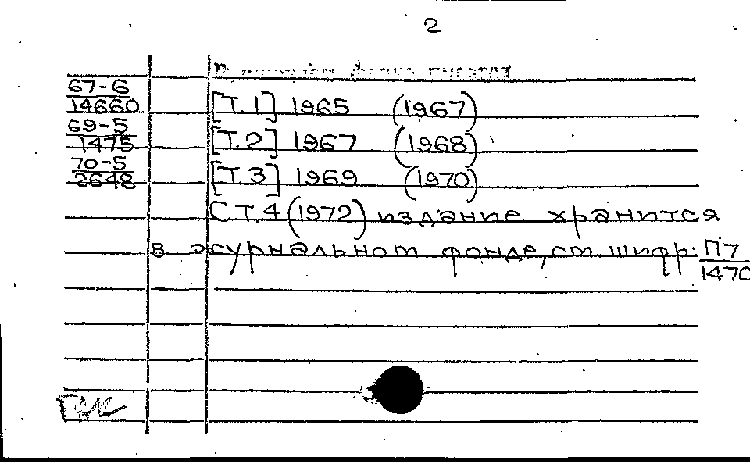 2
67-6
14660 [Т.1] 1965 (1967)
69-5
1475 [Т.2] 1967 (1968)
70-5
2648 [Т.3] 1969 (1970)
С Т.4 (1972) издание хранится
в журнальном фонде, см. шифр: П7
1470